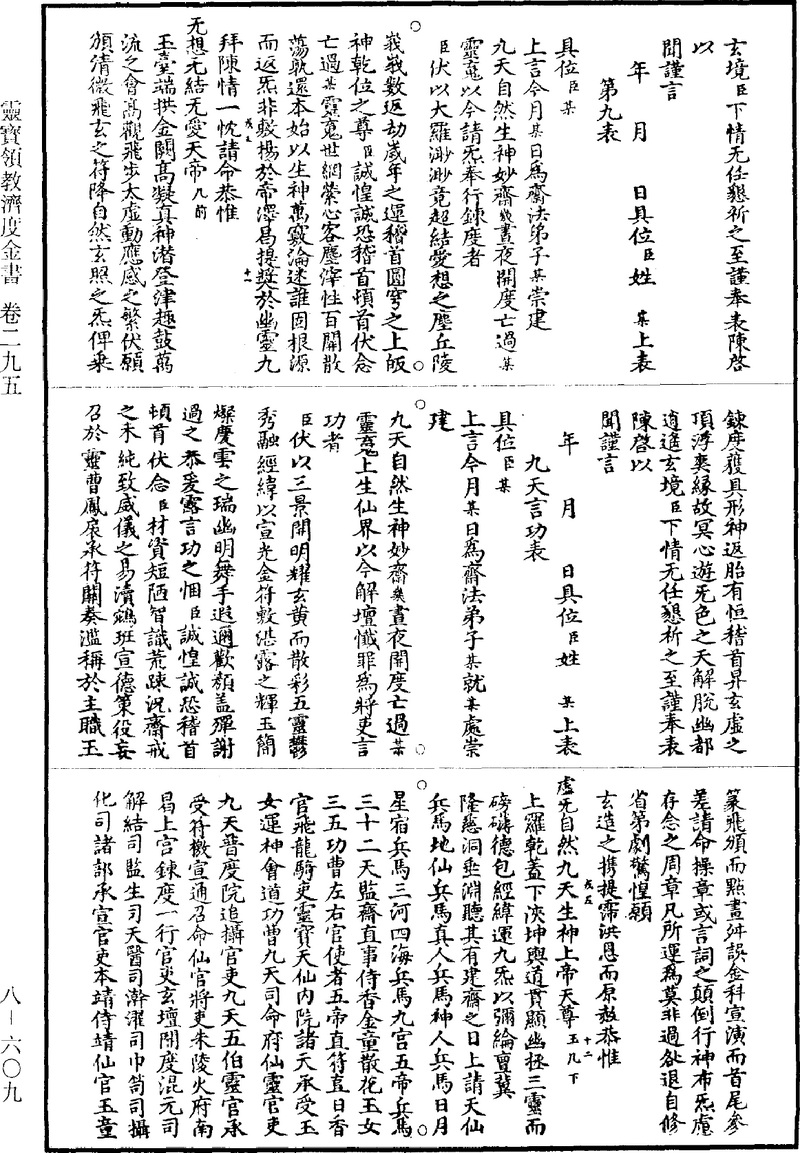 玄境臣下情无任懇祈之至謹奉表陳啓
以
聞謹言
年　月　　日具位臣姓　某上表
第九表
具位臣某
上言今月某日爲齋法弟子某崇建
九天自然生神妙齋幾晝夜開度亡過某
靈䰟以今請炁奉行鍊度者
臣伏以大羅渺渺竟超結愛想之塵丘陵
峩峩數返劫歲年之運稽首圓穹之上皈
神乾位之尊臣誠惶誠恐稽首頓首伏念
亡過某靈䰟世網縈心客塵滓性百關散
蕩孰還本始以生神萬竅淪迷誰固根源
而返炁非敷揚於帝澤曷提奬於幽靈九
拜陳情一忱請命恭惟
戊五　十一
无想无結无愛天帝几前
玉臺瑞拱金闕高凝真神潜登津趣鼓萬
流之會高觀飛步太虛動應感之繁伏願
頒清微飛玄之符降自然玄照之炁俾乘
鍊度蓰具形神返胎有恒稽首昇玄虛之
項浮爽緣故冥心遊无色之天解脫幽都
逍遙玄境臣下情无任懇祈之至謹奉表
陳啓以
聞謹言
年　月　　日具位臣姓　某上表
九天言功表
具位臣某
上言今月某日爲齋法弟子某就某處崇
建
九天自然生神妙齋幾晝夜開度亡過某
靈䰟上生仙界以今解壇懺罪爲將吏言
功者
臣伏以三景開明耀玄黄而散彩五靈欝
秀融經緯以宣光金符敷湛露之輝玉簡
燦慶雲之瑞幽明舞手遐邇歡顏蓋殫謝
過之恭爰露言功之悃臣誠惶誠恐稽首
頓首伏念臣材資短陋智識荒踈况齋戒
之未純致威儀之易瀆鵷班宣德策役妄
召於靈曹鳳扆承符關奏濫稱於主職玉
篆飛頒而點畫舛誤金科宣演而首尾參
差請命操章或言詞之顛倒行神布炁慮
存念之周章凡所運爲莫非過咎退自修
省第劇驚惶願
玄造之携提霈洪恩而原赦恭惟
戊五　十二
虛无自然九天生神上帝天尊玉几下
上羅乾蓋下浹坤輿道貫顯幽拯三靈而
磅礴德包經緯運九炁以彌綸亶冀
隆慈洞垂淵聽其有建齋之日上請天仙
兵馬地仙兵馬真人兵馬神人兵馬日月
星宿兵馬三河四海兵馬九宫五帝兵馬
三十二天監齋直事侍香金童散花玉女
三五功曹左右官使者五帝直符直日香
官飛龍騎吏靈寳天仙内院諸天承受玉
女運神會道功曹九天司命府仙靈官吏
九天普度院追攝官吏九天五伯靈官承
受符檄宣通召命仙官將吏朱陵火府南
昌上宫鍊度一行官吏玄壇開度混元司
解結司監生司天醫司澣濯司巾笥司攝
化司諸部承宣官吏本靖侍靖仙官玉童
靈寶領教濟度金書　卷二九五
八－六〇九